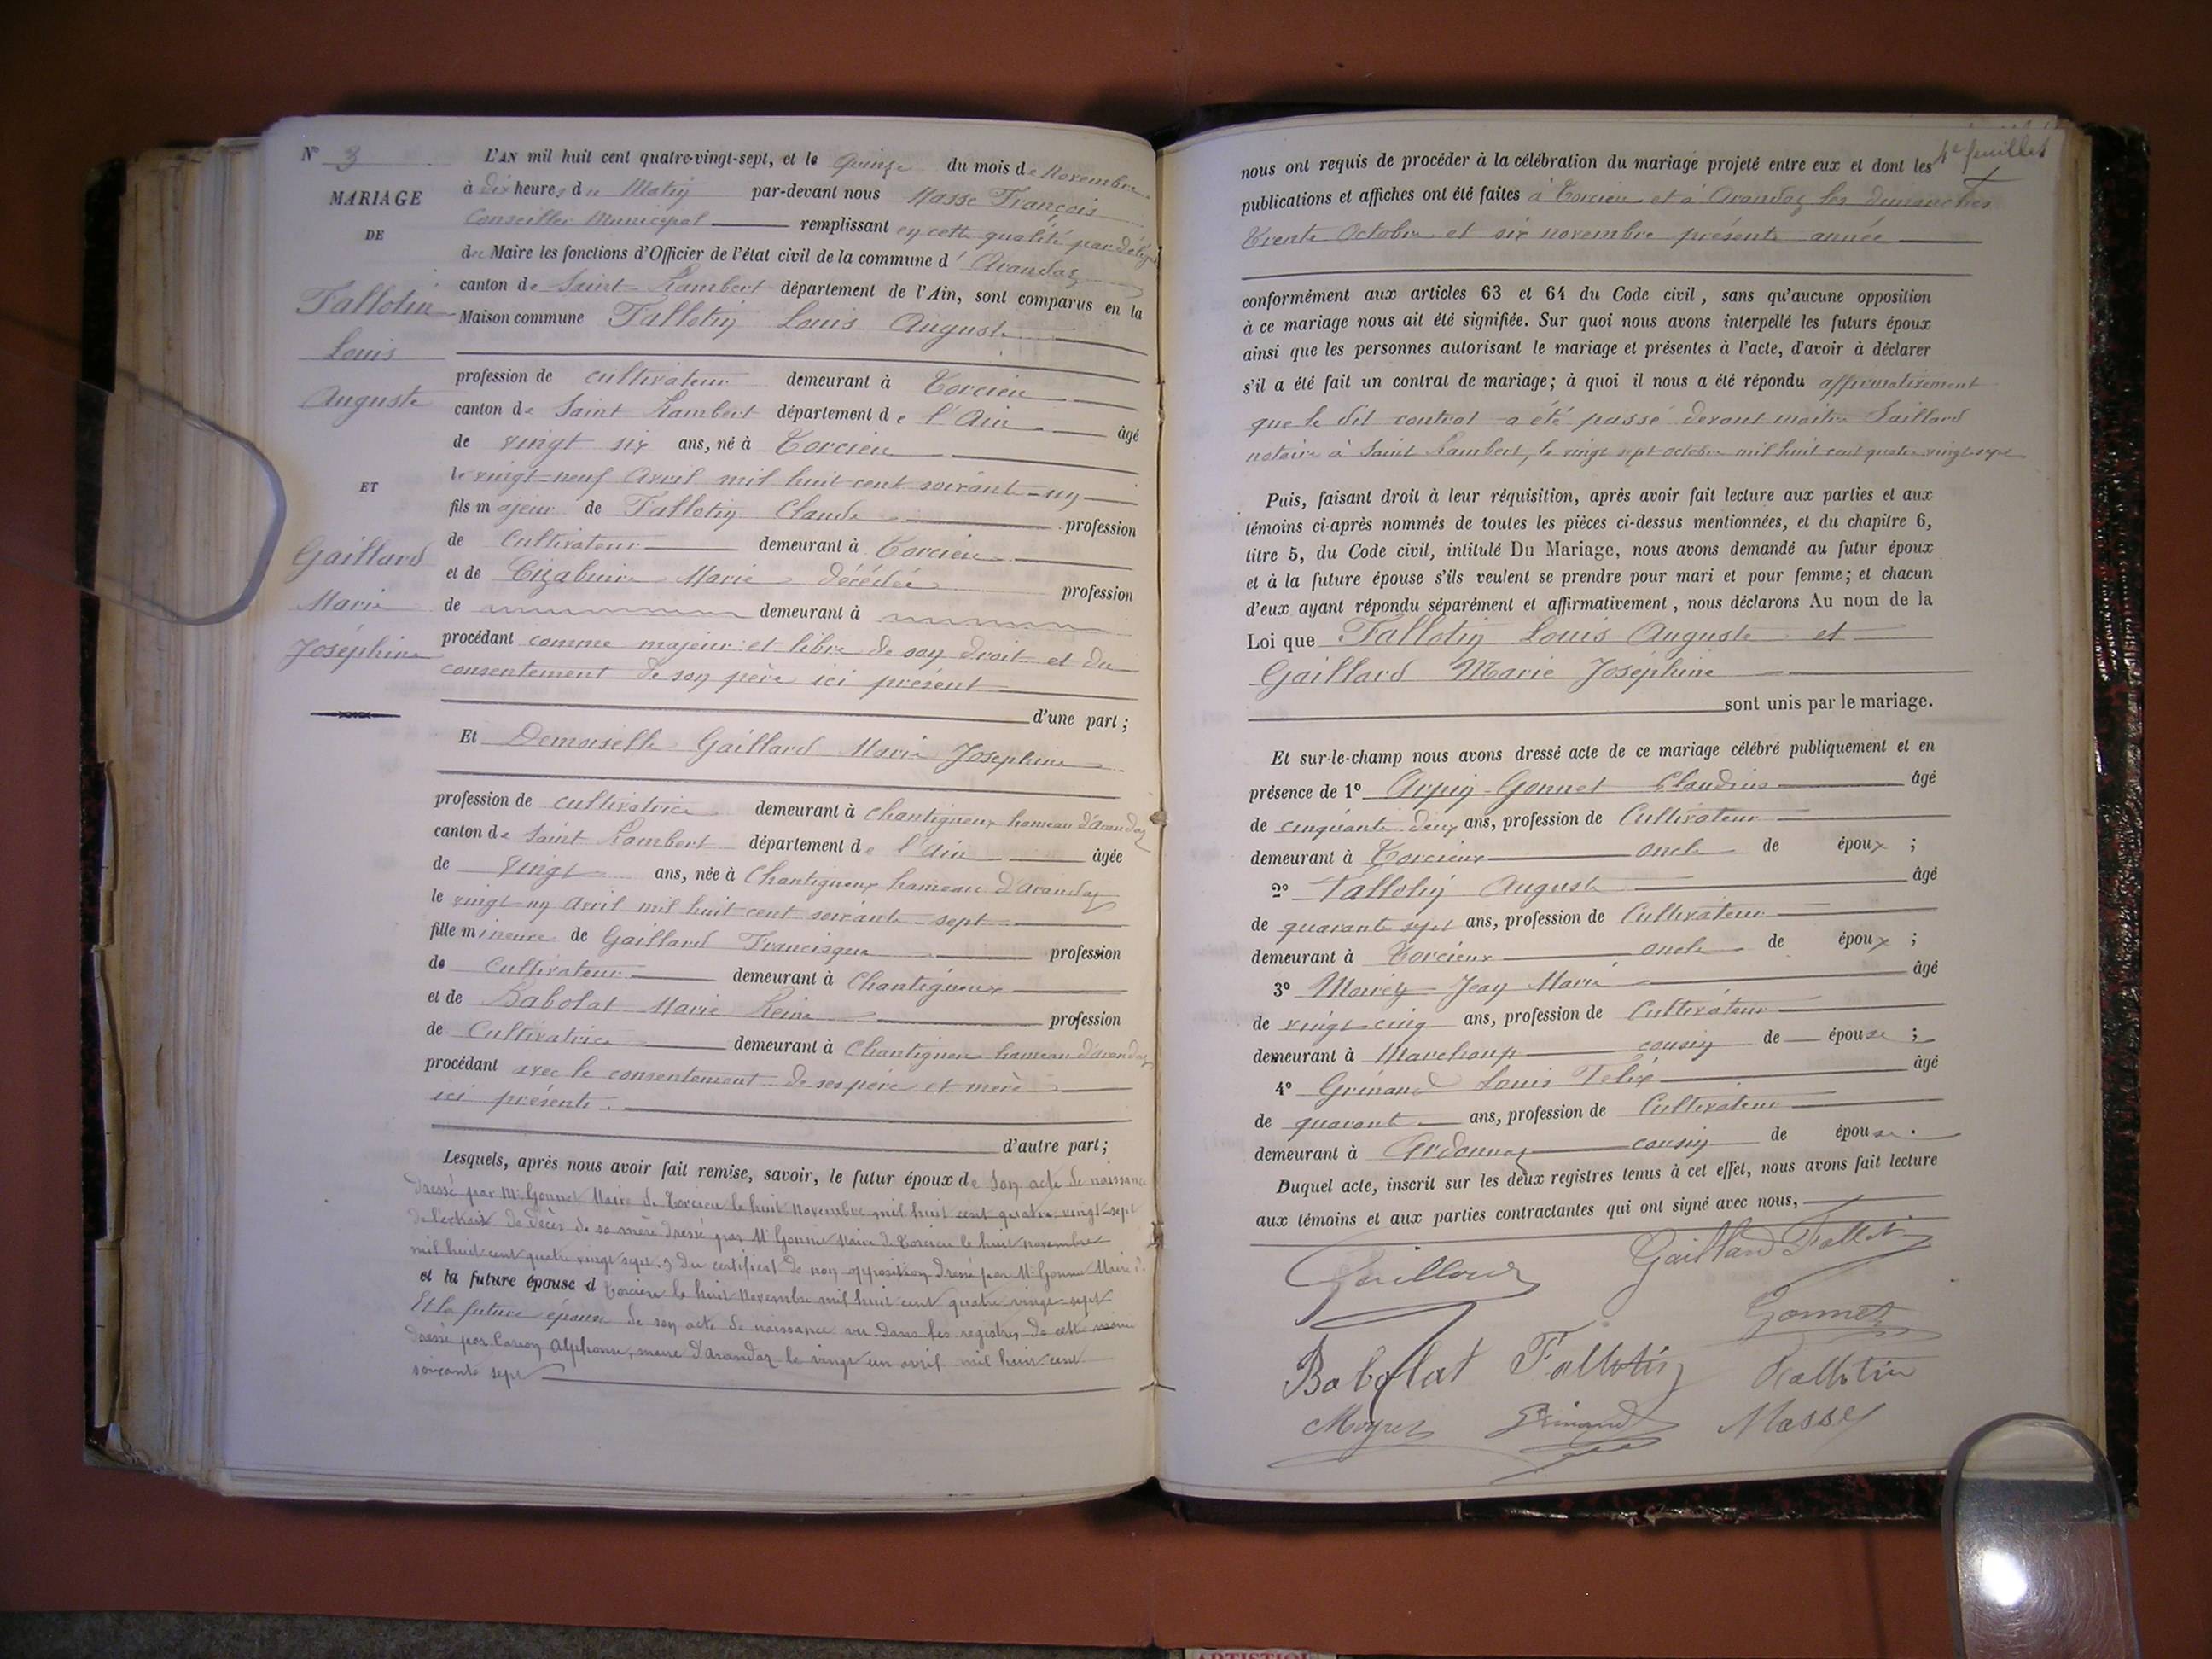 N° 3
MARIAGE
DE
Fallotin
Louis
Auguste
ET
Gaillard
Marie
Joséphine
L'AN mil huit cent quatre-vingt-sept, et le quinze du mois de Novembre
à dix heures du Matin par-devant nous Masse François
Conseiller Municipal remplissant en cette qualité par délégué
du Maire les fonctions d'Officier de l'état civil de la commune d'Arandaz
canton de Saint-Rambert département de l'Ain, sont comparus en la
Maison commune Fallotin Louis Auguste
profession de cultivateur demeurant à Torcieu
canton de Saint Rambert département de l'Ain âgé
de vingt six ans, né à Torcieu
le vingt-neuf Avril mil huit cent soixante-un
fils majeur de Fallotin Claude profession
de Cultivateur demeurant à Torcieu
et de Marie décédée profession
de demeurant à
procédant comme majeur et libre de son droit et du
consentement de son père ici présent
d'une part;
Et Demoiselle Gaillard Marie Josephine
profession de cultivatrice demeurant à Chantigneux hameau d'arandaz
canton de Saint Rambert département de l'Ain âgée
de vingt ans, née à Chantigneux hameau d'arandaz
le vingt un avril mil huit cent soixante-sept
fille mineure de Gaillard Francisque profession
de Cultivateur demeurant à Chantigneux
et de Babolat Marie Reine profession
de Cultivatrice demeurant à Chantigneux hameau d'arandaz
procédant avec le consentement de ses père et mère
ici présents
d'autre part;
Lesquels, après nous avoir fait remise, savoir, le futur époux de son acte de naissance
dressé par Mr Gonnet Maire de Torcieu le huit Novembre mil huit cent quatre vingt-sept
de l'extrait de décès de sa mère dressé par Mr Gonnet Maire de Torcieu le huit novembre
mil huit cent quatre vingt sept. du certificat de non opposition dressé par Mr Gonnet Maire de
et la future épouse d Torcieu le huit Novembre mil huit cent quatre vingt-sept
Et la future épouse de son acte de naissance vu dans les registres de cette
dressé par Alphonse, maire d'arandaz le vingt un avril mil huit cent
soixante sept
nous ont requis de procéder à la célébration du mariage projeté entre eux et dont les
feuillet
publications et affiches ont été faites à Torcieu et à Arandaz les dimanches
trente Octobre et six novembre présente année
conformément aux articles 63 et 64 du Code civil, sans qu'aucune opposition
à ce mariage nous ait été signifiée. Sur quoi nous avons interpellé les futurs époux
ainsi que les personnes autorisant le mariage et présentes à l'acte, d'avoir à déclarer
s'il a été fait un contrat de mariage; à quoi il nous a été répondu affirmativement
que le dit contrat a été passé devant maître Saillard
notaire à Saint Rambert, le vingt sept octobre mil huit cent quatre vingt-sept
Puis, faisant droit à leur réquisition, après avoir fait lecture aux parties et aux
témoins ci-après nommés de toutes les pièces ci-dessus mentionnées, et du chapitre 6,
titre 5, du Code civil, intitulé Du Mariage, nous avons demandé au futur époux
et à la future épouse s'ils veulent se prendre pour mari et pour femme; et chacun
d'eux ayant répondu séparément et affirmativement, nous déclarons Au nom de la
Loi que Fallotin Louis Auguste et
Gaillard Marie Joséphine
sont unis par le mariage.
Et sur-le-champ nous avons dressé acte de ce mariage célébré publiquement et en
présence de 1° Arpin-Gonnet Claudius âgé
de cinquante deux ans, profession de Cultivateur
demeurant à Torcieux oncle de époux ;
2° Fallotin Auguste âgé
de quarante sept ans, profession de Cultivateur
demeurant à Torcieux oncle de époux ;
3° Jean Marie âgé
de vingt-cinq ans, profession de Cultivateur
demeurant à Marchamp cousin de épouse ;
4° Grinand Louis Felix âgé
de quarante ans, profession de Cultivateur
demeurant à Ordonnaz cousin de épouse.
Duquel acte, inscrit sur les deux registres tenus à cet effet, nous avons fait lecture
aux témoins et aux parties contractantes qui ont signé avec nous,
Gaillard Gaillard Fallotin
Gonnet
Babolat Fallotin Fallotin
Grinand Masse